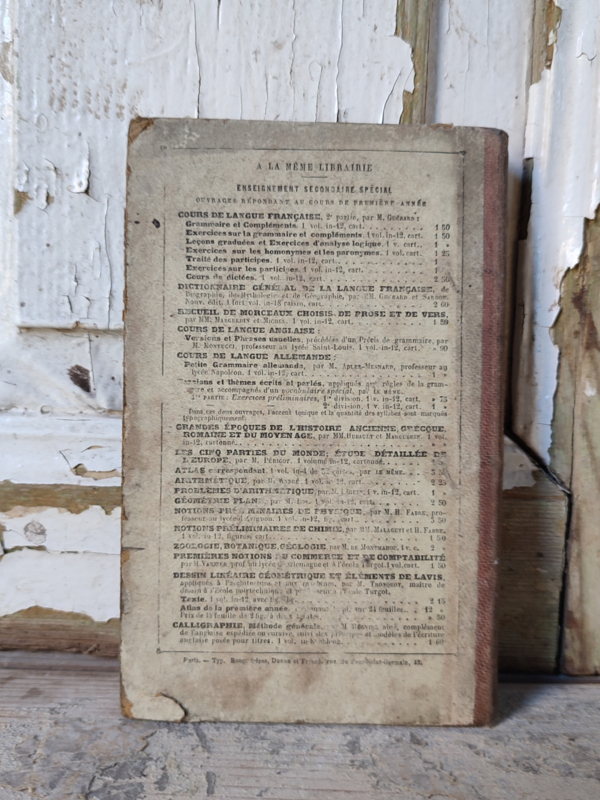 A LA MÊME LIBRAIRIE
ENSEIGNEMENT SECONDAIRE SPÉCIAL
OUVRAGES RÉPONDANT AU COURS DE PREMIÈRE ANNÉE
COURS DE LANGUE FRANÇAISE, 2e partie, par M. GUÉRARD :
Grammaire et Compléments. 1 vol. in-12, cart. 1 50
Exercices sur la grammaire et compléments. 1 vol. in-12, cart. 1 50
Leçons graduées et Exercices d'analyse logique. 1 v. cart. 1 »
Exercices sur les homonymes et les paronymes. 1 vol. cart. 1 25
Traité des participes. 1 vol. in-12, cart. 1
Exercices sur les participes. 1 vol. in-12, cart. 1
Cours de dictées. 1 vol. in-12, cart. 2 50
DICTIONNAIRE GÉNÉRAL DE LA LANGUE FRANÇAISE, de
Biographie, de Mythologie et de Géographie, par MM. GUÉRARD et SARDOU.
Nouv. édit. 1 fort vol. in-18 raisin, cart. 2 60
RECUEIL DE MORCEAUX CHOISIS DE PROSE ET DE VERS,
par MM. MARGUERIN et MICHEL. 1 vol. in-12, cart. 1 50
COURS DE LANGUE ANGLAISE :
Versions et Phrases usuelles, précédées d'un Précis de grammaire, par
M. professeur au lycée Saint-Louis. 1 vol. in-12, cart. » 90
COURS DE LANGUE ALLEMANDE :
Petite Grammaire allemande, par M. ADLER-MESNARD, professeur au
lycée Napoléon. 1 vol. in-12, cart. 1 »
et thèmes écrits et parlés, appliqués aux règles de la gram-
et accompagnés d'un vocabulaire spécial, par LE MÊME.
1re PARTIE : Exercices préliminaires, 1re division. 1 v. in-12, cart. » 75
2e division. 1 v. in-12, cart. 1 »
Dans ces deux ouvrages, l'accent tonique et la quantité des syllabes sont marqués
typographiquement.
GRANDES ÉPOQUES DE L'HISTOIRE ANCIENNE, GRECQUE,
ROMAINE ET DU MOYEN AGE, par MM. HUBAULT et MARGUERIN. 1 vol.
in-12, cartonné.
LES CINQ PARTIES DU MONDE; ÉTUDE DÉTAILLÉE DE
L'EUROPE, par M. PÉRIGOT. 1 volume in-12, cartonné.
ATLAS correspondant. 1 vol. in-4 de cartes, par LE MÊME.
ARITHMÉTIQUE, par M. 1 vol. in-12, cart. 2 25
PROBLÈMES D'ARITHMÉTIQUE, par M. 1 v. in-12, cart. 1 »
GÉOMÉTRIE PLANE, par M. 1 vol. in-12, cart. 2 50
NOTIONS PRÉLIMINAIRES DE PHYSIQUE, par M. H. FABRE, pro-
fesseur au lycée d'Avignon. 1 vol. in-12, fig., cart. 3 50
NOTIONS PRÉLIMINAIRES DE CHIMIE, par MM. MALAGUTI et H. FABRE.
1 vol. in-12, figures, cart. 1 50
ZOOLOGIE, BOTANIQUE, GÉOLOGIE, par M. DE MONTMAHOU. 1 v. c. 2 »
PREMIÈRES NOTIONS DU COMMERCE ET DE COMPTABILITÉ
par H. prof. au lycée Charlemagne et à l'école Turgot. 1 vol. cart. 1 50
DESSIN LINÉAIRE GÉOMÉTRIQUE ET ÉLÉMENTS DE LAVIS,
appliqués à l'architecture et aux machines, par M. TRONQUOY, maître de
dessin à l'École polytechnique et professeur à l'école Turgot.
Texte. 1 vol. in-12 avec fig. 2 15
Atlas de la première année, 24 feuilles. 12 »
Prix de la feuille de 2 fig. » 50
CALLIGRAPHIE, Méthode générale, complément
de l'anglaise expédiée ou cursive, suivi des principes et modèles de l'écriture
anglaise posée pour titres. 1 vol.
Paris. — Typ. Rouge frères, Dunon et Fresné, rue du Four-Saint-Germain, 43.